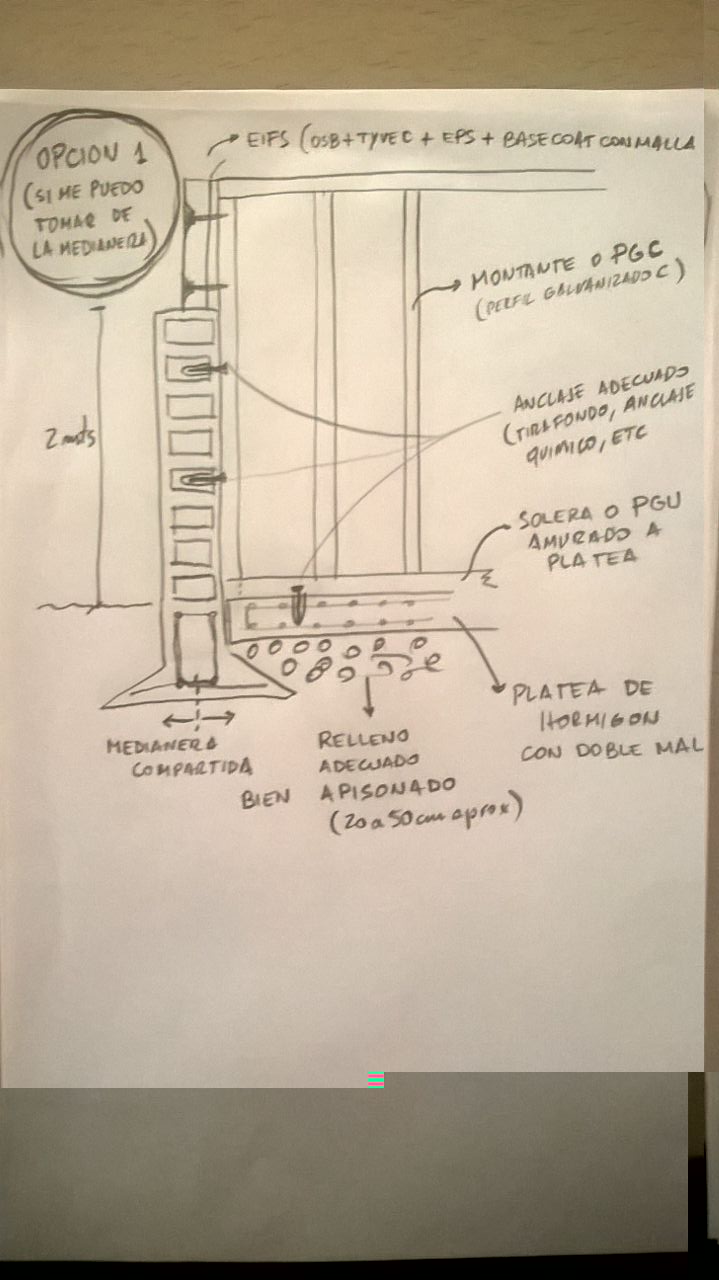 OPCION 1
(SI ME PUEDO
TOMAR DE
LA MEDIANERA)
EIFS (OSB+TYVEC + EPS + BASECOAT CON MALLA
MONTANTE O PGC
(PERFIL GALVANIZADO C)
2 mts
ANCLAJE ADECUADO
(TIRAFONDO, ANCLAJE
QUIMICO, ETC
SOLERA O PGU
AMURADO A
PLATEA
PLATEA DE
HORMIGON
CON DOBLE MAL
MEDIANERA
COMPARTIDA
RELLENO
ADECUADO
BIEN APISONADO
(20 a 50 cm aprox)